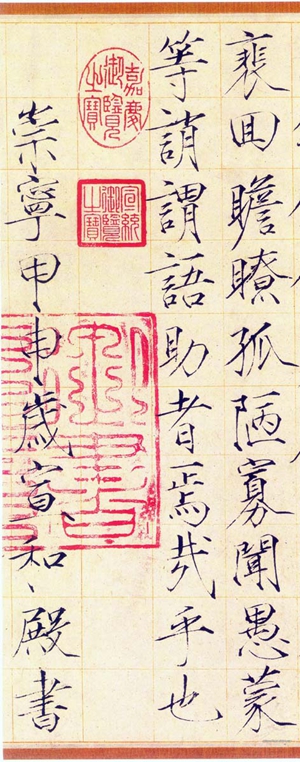 裵回瞻瞭孤陋寡聞愚蒙
等誚謂語助者焉哉乎也
嘉慶御覽之寶
宣統御覽之寶
崇寧甲申歲宣和殿書